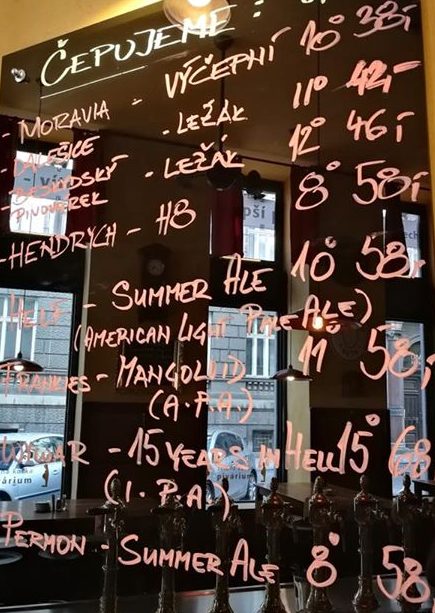 ČEPUJEME:
- MORAVIA - VÝČEPNÍ 10° 38,-
- DALEŠICE - LEŽÁK 11° 42,-
- BESKYDSKÝ PIVOVÁREK - LEŽÁK 12° 46,-
- HENDRYCH - H8 8° 58,-
- HELF - SUMMER ALE 10° 58,-
(AMERICAN LIGHT PALE ALE)
FRANKIES - MANGOLOID 11° 58,-
(A.P.A)
- 15 YEARS IN HELL 15° 68
(I.P.A.)
PERMON - SUMMER ALE 8° 58
pivárium
pivárium